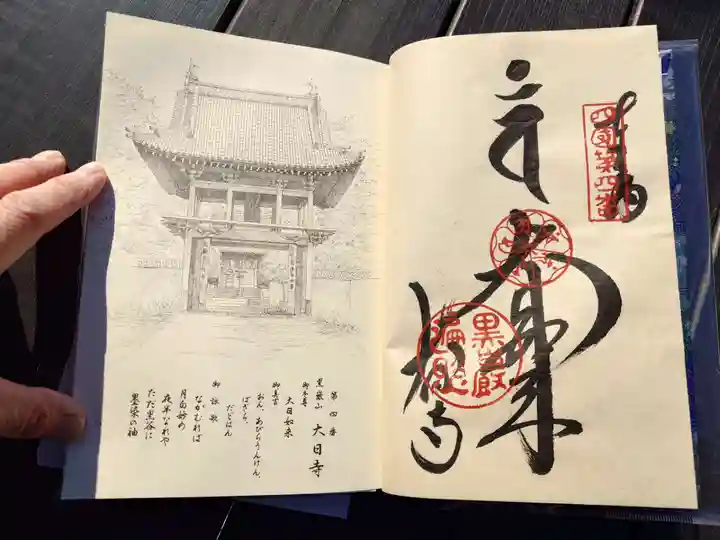 第四番
黒巌山 大日寺
御本尊
大日如来
御真言
おん、あびらうんけん、
ばざら、
だどばん
御詠歌
ながむれば
月白妙の
夜半なれや
ただ黒谷に
墨染の袖
奉納
四国第四番
大日如来
大日寺
黒巌山
遍照